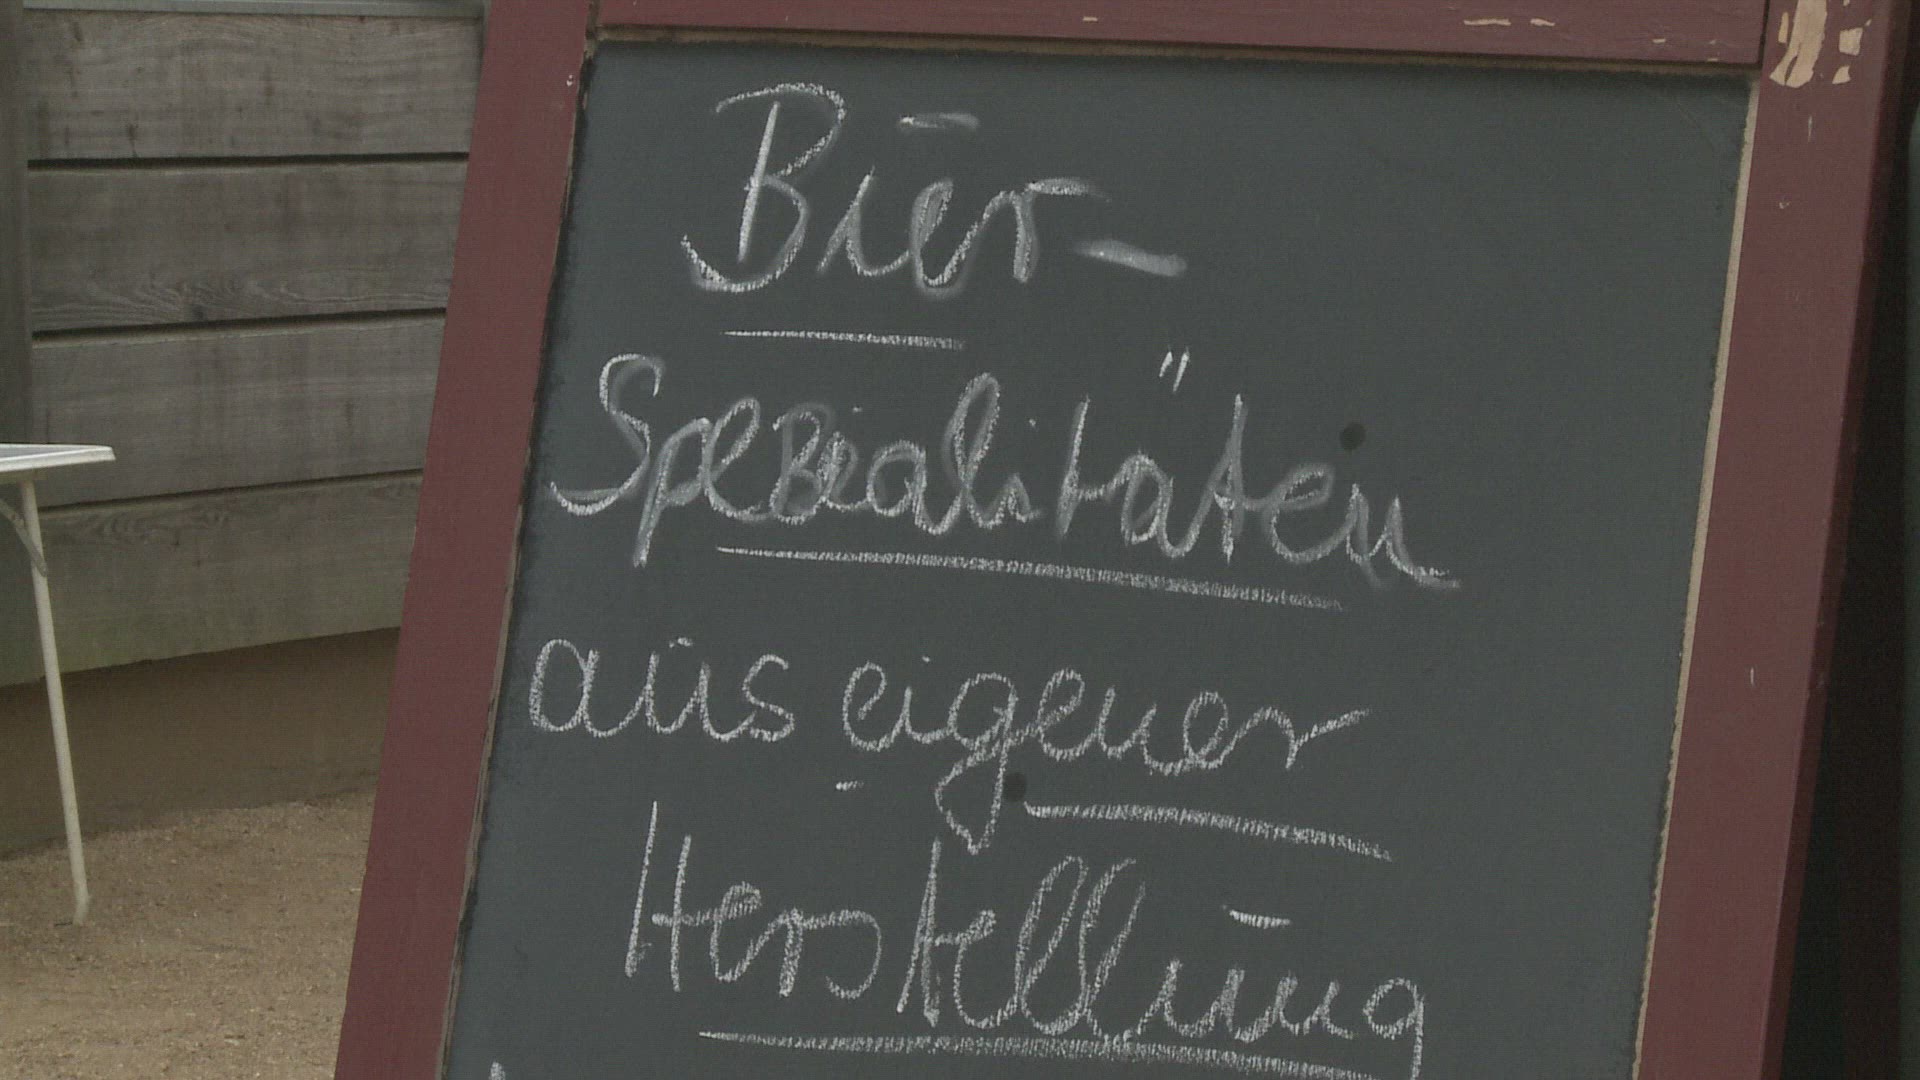 Bier-
Spezialitäten
aus eigener
Herstellung